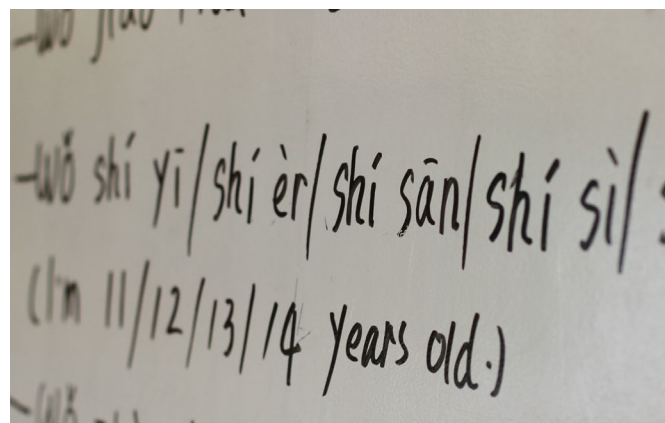 -Wǒ jiào
-Wǒ shí yī/shí èr/shí sān/shí sì/
(I'm 11/12/13/14 years old.)
-Wǒ